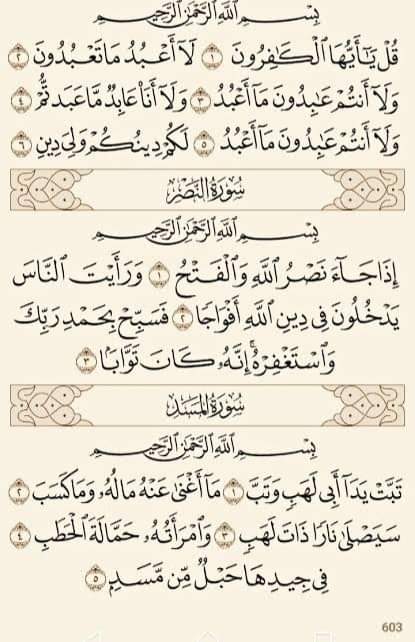 بِسْمِ ٱللَّهِ ٱلرَّحْمَٰنِ ٱلرَّحِيمِ
قُلْ يَٰٓأَيُّهَا ٱلْكَٰفِرُونَ ١ لَآ أَعْبُدُ مَا تَعْبُدُونَ ٢
وَلَآ أَنتُمْ عَٰبِدُونَ مَآ أَعْبُدُ ٣ وَلَآ أَنَا۠ عَابِدٌ مَّا عَبَدتُّمْ ٤
وَلَآ أَنتُمْ عَٰبِدُونَ مَآ أَعْبُدُ ٥ لَكُمْ دِينُكُمْ وَلِىَ دِينِ ٦
سُورَةُ النَّصْرِ
بِسْمِ ٱللَّهِ ٱلرَّحْمَٰنِ ٱلرَّحِيمِ
إِذَا جَآءَ نَصْرُ ٱللَّهِ وَٱلْفَتْحُ ١ وَرَأَيْتَ ٱلنَّاسَ
يَدْخُلُونَ فِى دِينِ ٱللَّهِ أَفْوَاجًا ٢ فَسَبِّحْ بِحَمْدِ رَبِّكَ
وَٱسْتَغْفِرْهُ ۚ إِنَّهُۥ كَانَ تَوَّابًۢا ٣
سُورَةُ المَسَدِ
بِسْمِ ٱللَّهِ ٱلرَّحْمَٰنِ ٱلرَّحِيمِ
تَبَّتْ يَدَآ أَبِى لَهَبٍ وَتَبَّ ١ مَآ أَغْنَىٰ عَنْهُ مَالُهُۥ وَمَا كَسَبَ ٢
سَيَصْلَىٰ نَارًا ذَاتَ لَهَبٍ ٣ وَٱمْرَأَتُهُۥ حَمَّالَةَ ٱلْحَطَبِ ٤
فِى جِيدِهَا حَبْلٌ مِّن مَّسَدٍۭ ٥
603